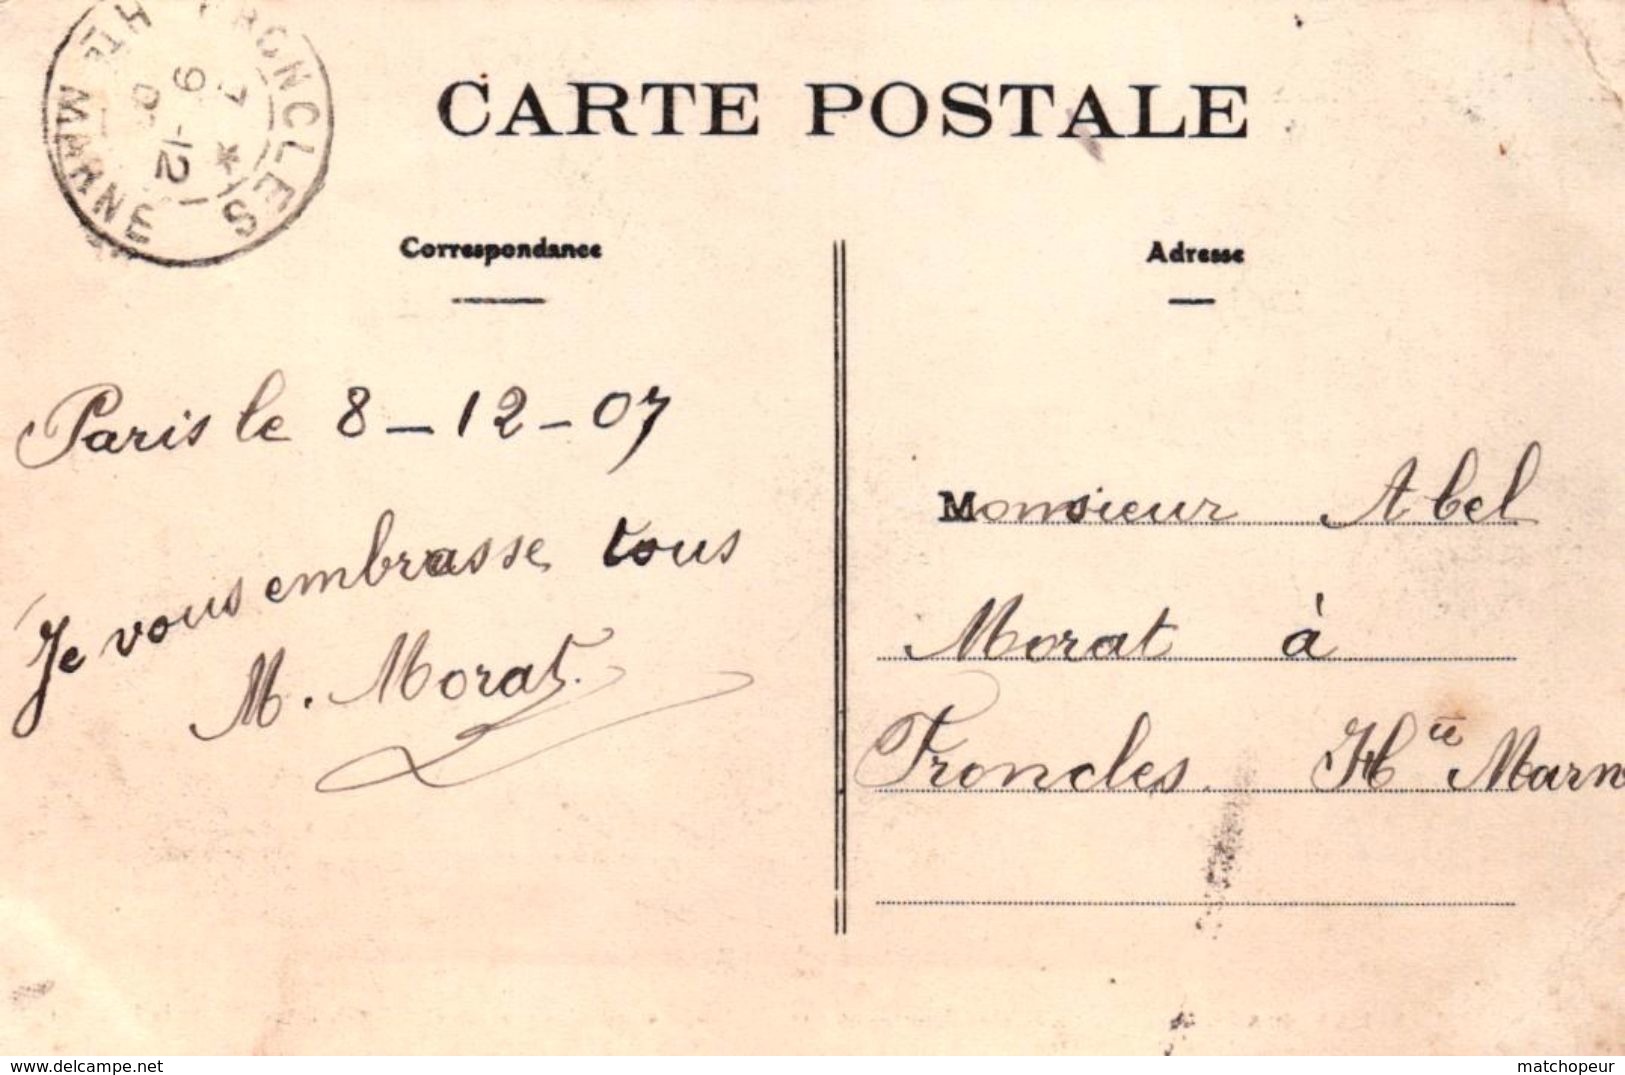 FRONCLES
HTE MARNE
7 *
9 -12
CARTE POSTALE
Correspondance
Adresse
Paris le 8-12-07
Je vous embrasse tous
M. Morat.
Monsieur Abel
Morat à
Froncles. Hte Marn
matchopeur